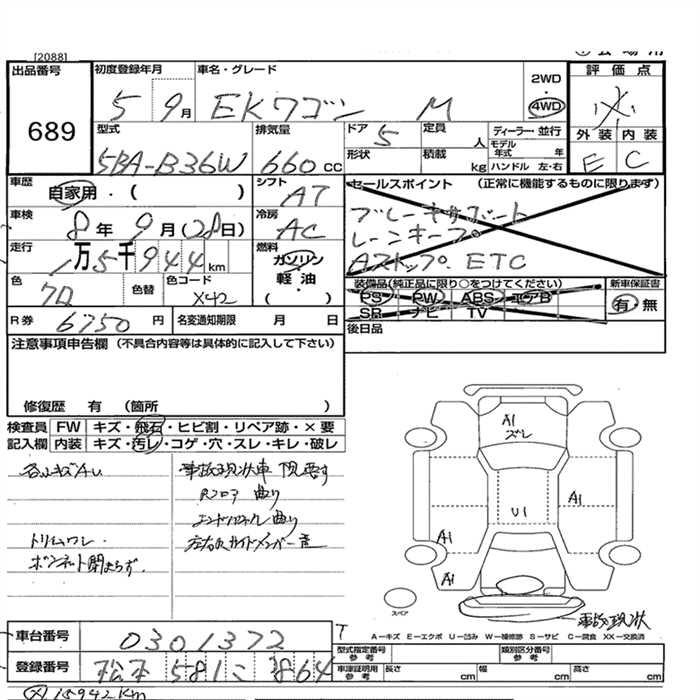 [2088]
出品番号
689
初度登録年月
5 9月
車名・グレード
EKワゴン M
2WD
4WD
評価点
外装 内装
E C
型式
5BA-B36W
排気量
660 CC
ドア 5
形状
定員 人
積載 kg
ディーラー・並行
モデル年式 年
ハンドル 左・右
車歴
自家用・( )
シフト
AT
セールスポイント (正常に機能するものに限ります)
ブレーキサポート
レーンキープ
Aストップ. ETC
車検
8年 9月(28日)
冷房
AC
走行
1万5千944km
燃料
ガソリン
軽油・
( )
色
色替
色コード
X42
装備品(純正品に限り○をつけてください)
PS PW ABS エアB
SR ナビ TV
新車保証書
有・無
R券 6750円
名変通知期限 月 日
後日品
注意事項申告欄 (不具合内容等は具体的に記入して下さい)
修復歴 有 (箇所 )
検査員 FW キズ・飛石・ヒビ割・リペア跡・×要
記入欄 内装 キズ・汚レ・コゲ・穴・スレ・キレ・破レ
事故現状車
Rフロア 曲り
エンドパネル 曲り
ボンネット閉まらず.
A1
ズレ
U1
A1
A1
A1
スペア
事故現状
A-キズ E-エクボ U-凹み W-補修跡 S-サビ C-腐食 XX-交換済
車台番号
0301372
登録番号
松本 581 こ 864
型式指定番号 参考
類別区分番号 参考
車庫証明用 参考
長さ cm
幅 cm
高さ cm
15942Km